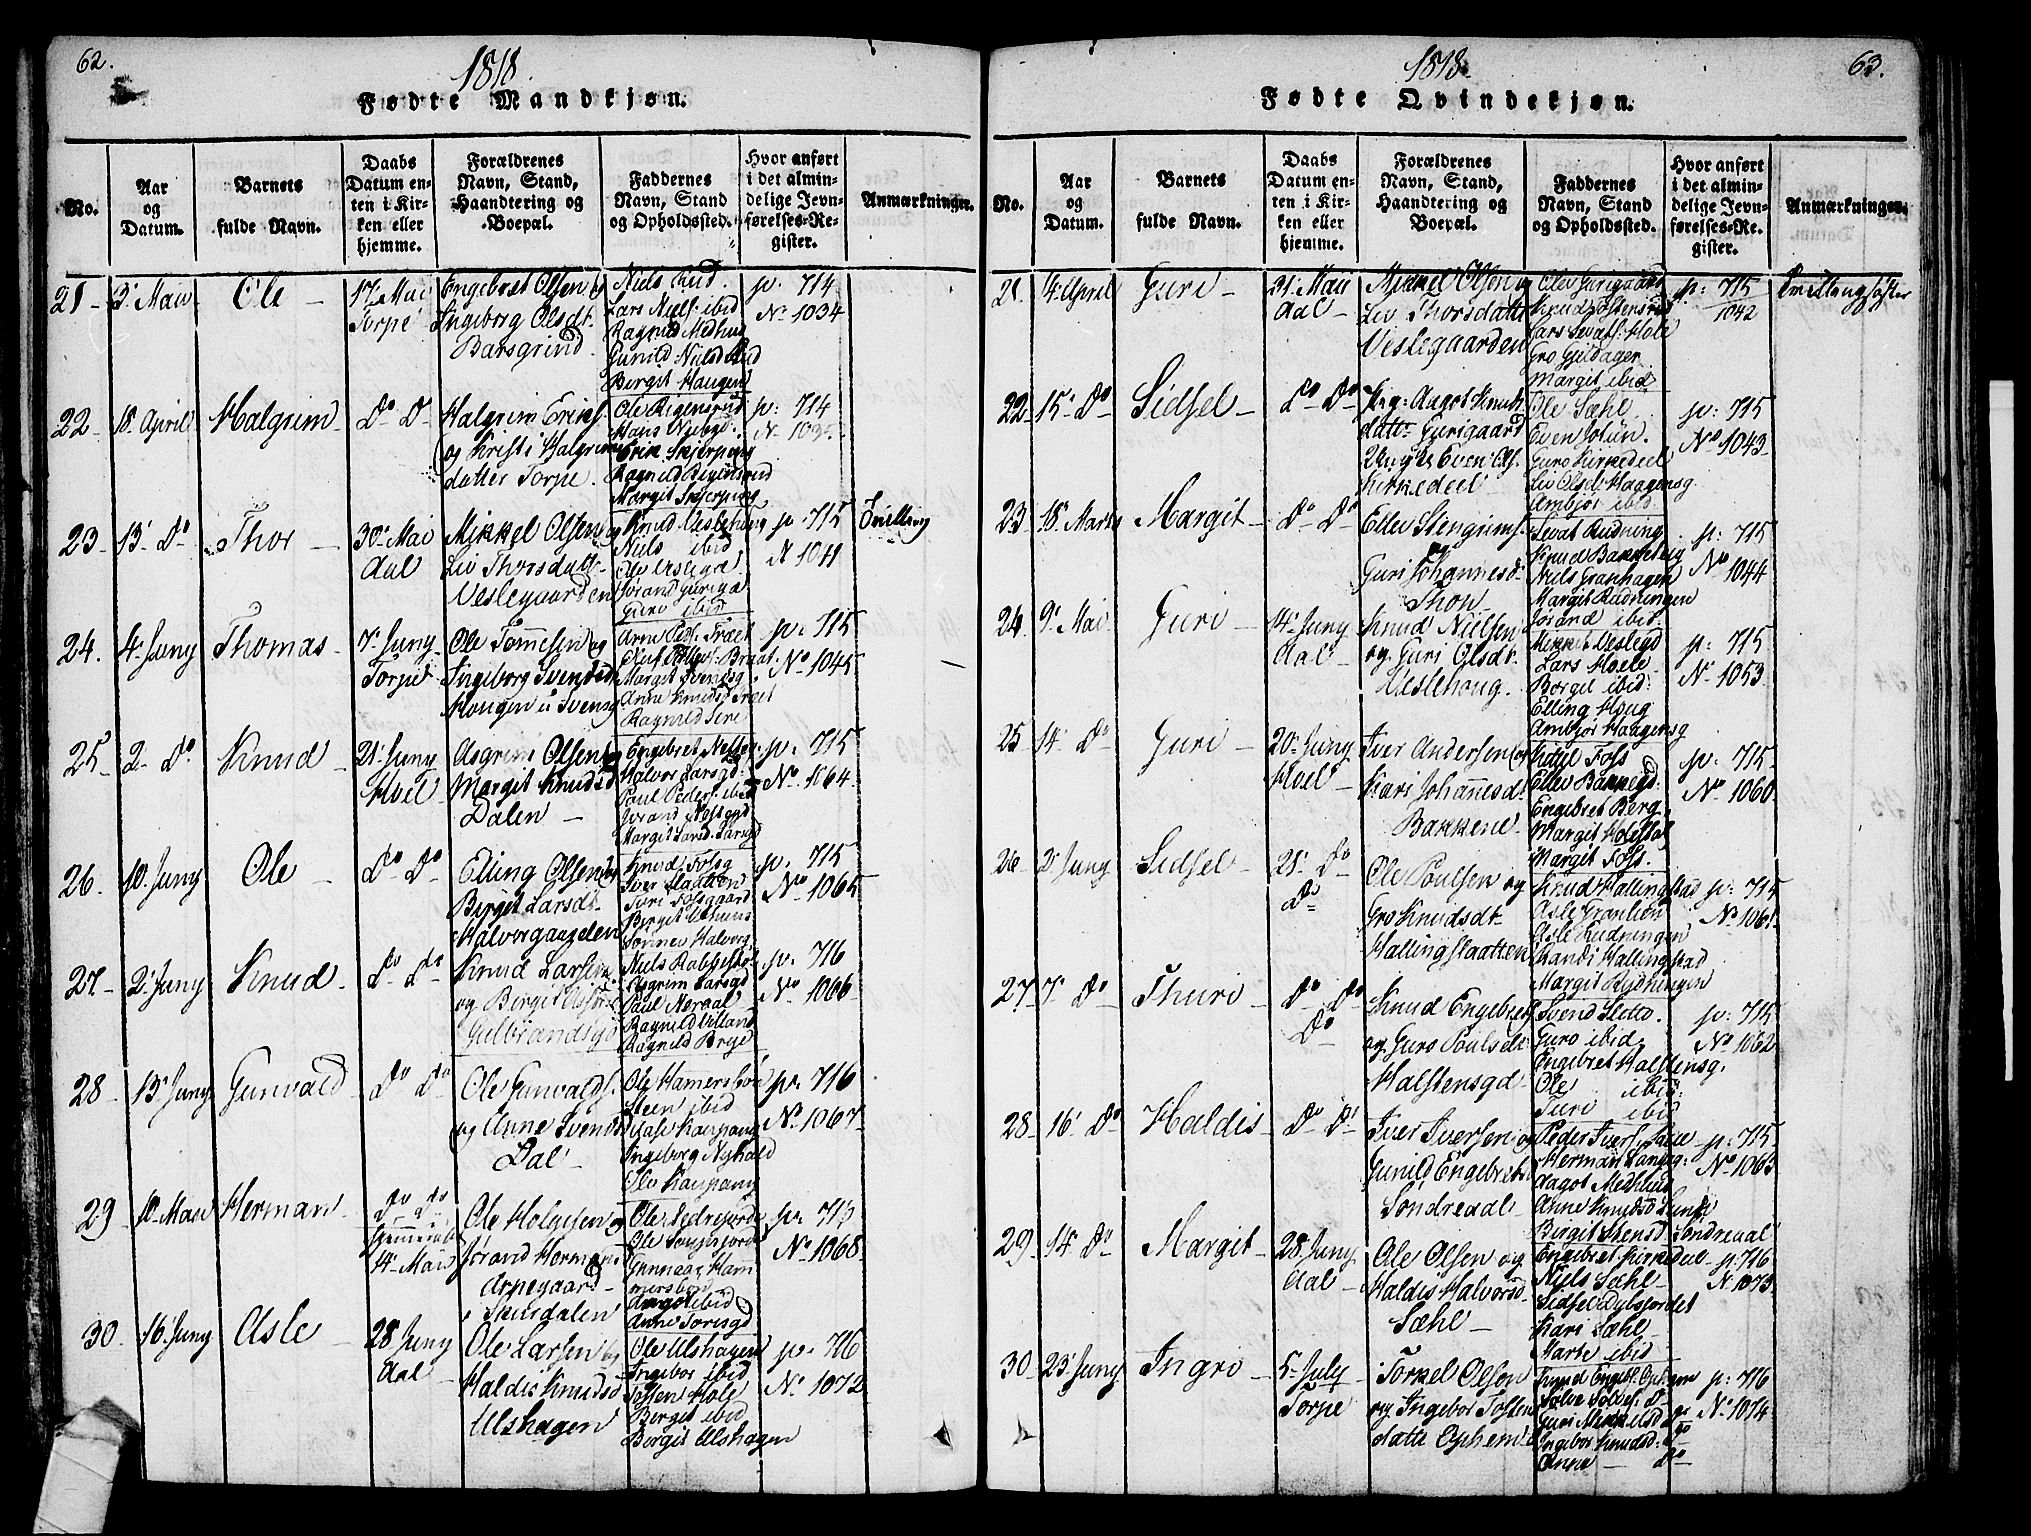 62.
1818.
Fødte Mandkjøn.
No.
Aar
og
Datum.
Barnets
fulde Navn.
Daabs
Datum en-
ten i Kir-
ken eller
hjemme.
Forældrenes
Navn, Stand,
Haandtering og
Boepæl.
Faddernes
Navn, Stand
og Opholdssted.
Hvor anført
i det almin-
delige Jevn-
førelses-Re-
gister.
Anmærkninger.
21 3 Mai Ole 17 Mai
Torpe
Engebret Olsen og
Ingeborg Olsdt.
Barsgrind
Niels Rud
Lars Niels: ibid
Ragnild Medhus
Gunild Nielsd Rud
Birgit Haugen
p. 714
No 1034
22 18 April Halgrim Do Do
Halgrim Eriks:
og Kristi Halgrims
datter Torpe.
Ole Rigensrud
Hans Nyebge.
Erik Skjerping
Ragnild Rigensrud
Margit Skjerping
p: 714
N 1035
23 13 Do Thor 30 Mai
Aal
Mikkel Olsen og
Liv Thorsdatt
Veslegaarden
Knud Veslehoug
Niels ibid
Ole Veslegrd
Jørand Gurigrd
Guri ibid
p 715
N 1041
Tvilling
24. 4 Juny Thomas 7 Juny
Torpe
Ole Tomesen og
Ingeborg Svendsd
Hougen u Svensg
Arne Peds: Træet
Margit Svendsg.
Anne Knudsd Træet
Ragnild Seri
p: 715
No 1045
25 2 Do Knud 21 Juny
Hoel
Asgrim Olsen og
Margit Knudsd
Dalen
Engebret Nessen
Halvor Larsgd:
Paul Peders: ibid
Jorand Nestegd
Margit Larsd. Larsgd
p: 715
No 1064
26. 10. Juny Ole Do Do
Elling Olsen og
Birgit Larsdt.
Halvorgaardelen
Knud Fossg
Iver Haatten
Turi Fossgaard
Birgit Uthuus
Sønnev Halvorg
p: 715
No 1065
27 2 Juny Knud Do Do
Knud Larsen
og Birgit Olsdt
Gulbrandsgd
Asgrim Larsgd
Paul Neraal
Ragnild Villand
Ragnild Brye
p: 716
No 1066
28 13 Juny Gunvald Do Do
Ole Gunvalds:
og Anne Svendsd
Dal
Ole Hamersbøn
Steen ibid
Aase Kaupang
Ingeborg Nyhald
Ole Kaupang
p: 716
No 1067
29 10 Mai Herman Do Do
hjemmedøbt
14 Mai
Ole Holgesen og
Jørand Hermans
Arpegaard
i Skurdalen
Ole Nedrejorde
Gunnaag Ham-
mersbøen
Aagot ibid
Anne Torisgd
p: 715
No 1068
30. 16 Juny Asle 28 Juny
Aal
Ole Larsen og
Haldis Knudsd
Ulshagen
Ole Ulshagen
Ingebor ibid
Tosten Hole
Birget ibid
Birgit Ulshagen
p. 716
No 1072
63.
1818.
Fødte Qvindekjøn.
No.
Aar
og
Datum.
Barnets
fulde Navn.
Daabs
Datum en-
ten i Kir-
ken eller
hjemme.
Forældrenes
Navn, Stand,
Haandtering og
Boepæl.
Faddernes
Navn, Stand
og Opholdssted.
Hvor anført
i det almin-
delige Jevn-
førelses-Re-
gister.
Anmærkninger.
21. 14 April Guri 31 Mai
Aal
Mikkel Olsen og
Liv Thorsdatte
Veslegaarden
Ole Gurigaard
Knud Tostensrud
Lars Sevats: Hole
Gro Gjeldager
Margit ibid
p: 715
1042
Tvillingsøster
22 15 Do Sidsel Do Do
Pige: Aagot Knuds
datt Gurigaard
Ungk: Even Ols.
Kirkedeel
Ole Sæhl
Even Jotun.
Guro Kirkedeel
Liv Olsd Haagensg.
Ambjør ibid.
p: 715
No 1043
23 18 Marts Margit Do Do
Ellev Stengrims:
og
Guri Johannesd
Thon
Sevat Rudning
Knud Bakkebrg
Niels Granhagen
Margit Rudningen
Jørand ibid.
p: 715
No 1044
24 9 Mai Guri 14 Juny
Aal
Knud Nielsen
og Guri Olsdt.
Veslehoug.
Mikkel Veslegd
Lars Hoele
Borgil ibid:
Elling Houg
Ambjør Haagensg
p: 715
N 1053
25 14 Do Guri 20 Juny
Hoel
Iver Andersen og
Kari Johannesdt
Bakkene
Ketil Foss
Ellev Bakkegd:
Engebret Berg
Margit Holesdal
Margit Foss.
p: 715
No 1060
26 2 Juny Sidsel 21 Do
Do
Ole Poulsen og
Gro Knudsdt.
Hallingstaatten
Knud Hallingstad
Asle Granlien
Asle Rudningen
Randi Hallingstad
Margit Rudningen
p: 715
No 1061
27 7 Do Thuri Do Do
Do
Knud Engebrets
og Guro Poulsdt
Halstensgd
Svend Sletto.
Guro ibid
Engebret Halstensg.
Ole ibid:
Turi ibid
p: 715
No 1062
28 16 Do Haldis Do Do
Iver Iversen og
Gunild Engebretsd
Søndreaal
Herman Langeg:
Aagot Medhus
Anne Knudsd Lunde
Birgit Stensd Søndreaal
p: 715
No 1063
29 14 Do Margit 28 Juny
Aal
Ole Olsen og
Haldis Halvorsd
Sæhl
Engebret Kirkedeel
Niels Sæhl
Sidsel Dybsjordet
Kari Sæhl
Marte ibid
p: 716
N 1073
30 23 Juny Ingri 5 July
Torpe
Torkel Olsen
og Ingebor Tostens
datte Ophem
Knud Engebs. Ophem
Sølve Sølves: Do
Guri Mikkelsd Do
Ingebor Knudsd: Do
Anne Do
p: 716
No 1074